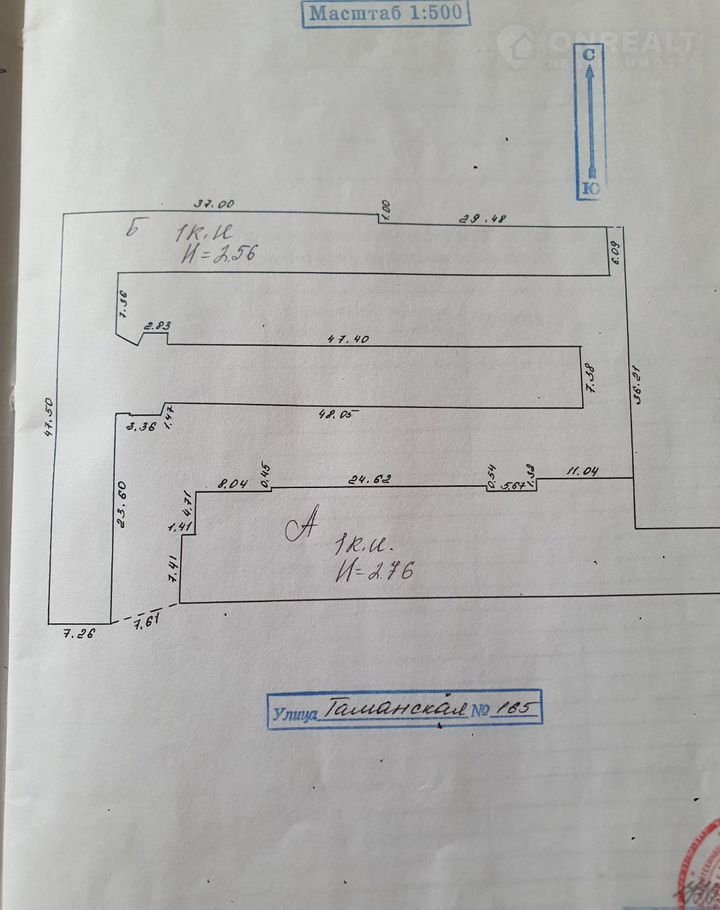 Масштаб 1:500
ONREALT
НЕДВИЖИМОСТЬ
С
Ю
37.00
1.00
29.48
Б
1к.и
Н=2.56
6.09
7.36
2.83
47.40
7.38
36.21
47.50
3.36
1.47
48.05
23.60
8.04
0.45
24.62
0.54
5.67
1.32
11.04
4.71
1.41
А
1к.и.
Н=2.76
7.41
7.26
7.61
Улица Таманская № 165